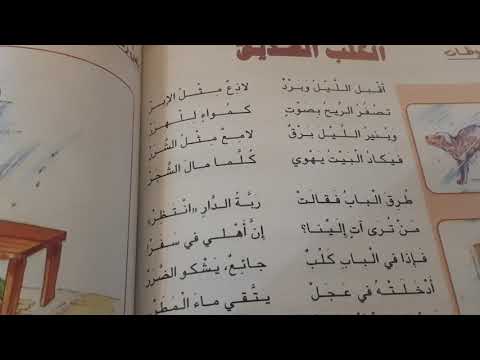 الكلب الصديق
أَقْبَلَ اللَّيْلُ وَبَرْدٌ لاذِعٌ مِثْلُ الإِبَرْ
تَصْفُرُ الرِّيحُ بِصَوْتٍ كَمُواءٍ
وَيُنيرُ اللَّيْلَ بَرْقٌ لامِعٌ مِثْلُ الشَّرَرْ
فَيَكادُ الْبَيْتُ يَهْوِي كُلَّما مالَ الشَّجَرْ
طُرِقَ الْبابُ فَقالَتْ رَبَّةُ الدَّارِ «انْتَظِرْ»
مَنْ تُرى آتٍ إِلَيْنا؟ إِنَّ أَهْلي في سَفَرْ
فَإِذا في الْبابِ كَلْبٌ جائِعٌ، يَشْكُو الضَّرَرْ
أَدْخَلَتْهُ في عَجَلٍ يَتَّقي ماءَ الْمَطَرْ